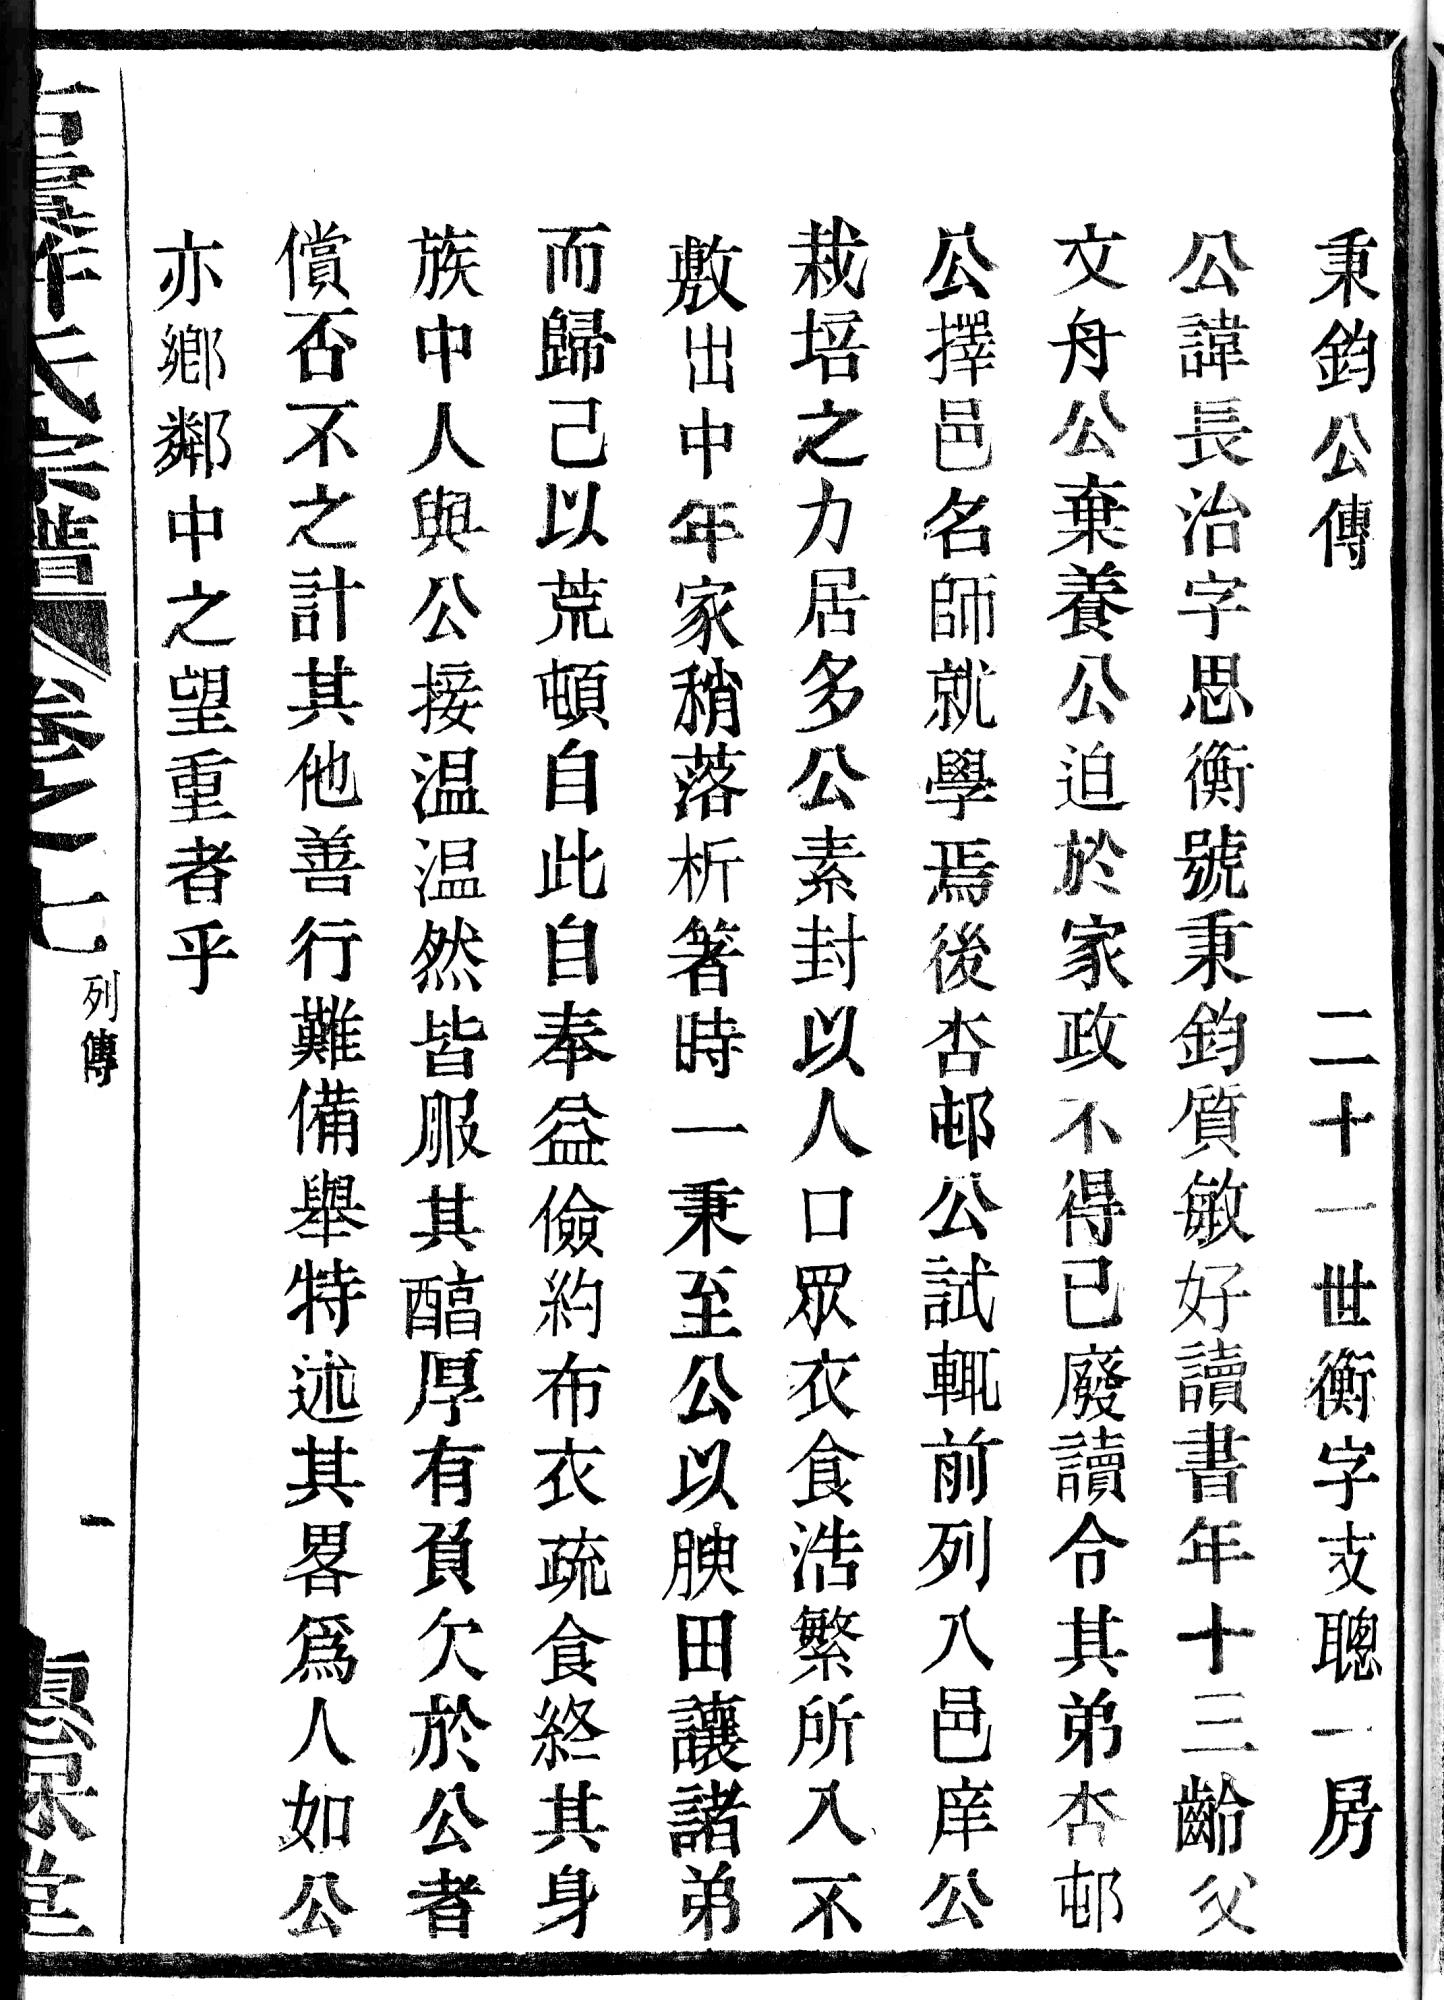 秉鈞公傳 二十一世衡字支聰一房
公諱長治字思衡號秉鈞質敏好讀書年十三齡父
文舟公棄養公迫於家政不得已廢讀令其弟杏邨
公擇邑名師就學焉後杏邨公試輒前列入邑庠公
栽培之力居多公素封以人口眾衣食浩繁所入不
敷出中年家稍落析箸時一秉至公以腴田讓諸弟
而歸己以荒頓自此自奉益儉約布衣疏食終其身
族中人與公接温温然皆服其醕厚有負欠於公者
償否不之計其他善行難備舉特述其畧爲人如公
亦鄉鄰中之望重者乎
氏宗譜 卷之七 列傳 一 堂